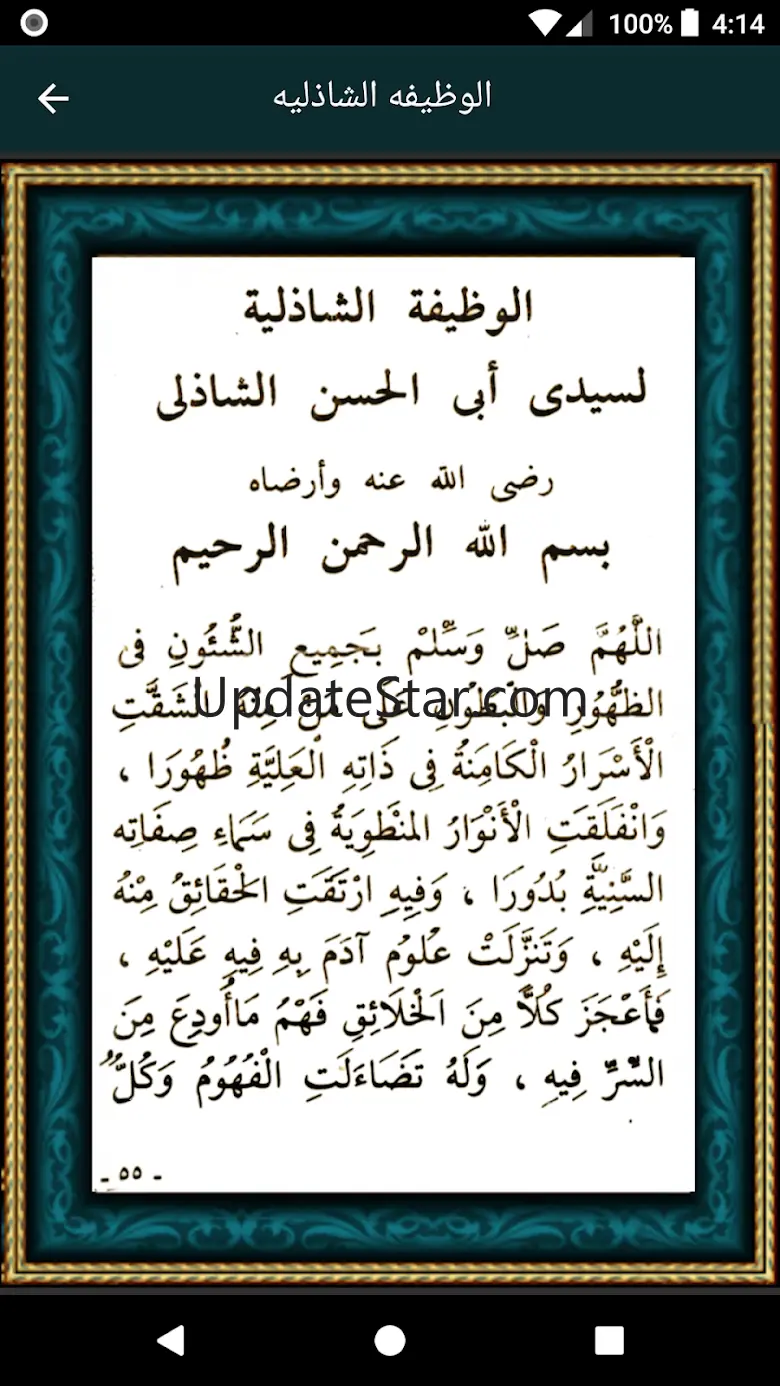 100% 4:14
الوظيفه الشاذليه
الوظيفة الشاذلية
لسيدى أبى الحسن الشاذلى
رضى الله عنه وأرضاه
بسم الله الرحمن الرحيم
اللَّهُمَّ صَلِّ وَسَلِّمْ بِجَمِيعِ الشُّئُونِ فِى
الظُّهُورِ وَالْبُطُونِ عَلَى مَنْ مِنْهُ انْشَقَّتِ
UpdateStar.com
الْأَسْرَارُ الْكَامِنَةُ فِى ذَاتِهِ الْعَلِيَّةِ ظُهُورَا ،
وَانْفَلَقَتِ الْأَنْوَارُ المنْطَوِيَةُ فِى سَمَاءِ صِفَاتِه
السَّنِيَّةِ بُدُورَا ، وَفِيهِ ارْتَقَتِ الْحَقائِقُ مِنْهُ
إِلَيْهِ ، وَتَنَزَّلَتْ عُلُومُ آدَمَ بِهِ فِيهِ عَلَيْهِ ،
فَأَعْجَزَ كُلاًّ مِنَ الْخَلَائِقِ فَهْمُ مَاأُودِعَ مِنَ
السِّرِّ فِيهِ ، وَلَهُ تَضَاءَلَتِ الْفُهُومُ وَكُلٌّ
- ٥٥ -